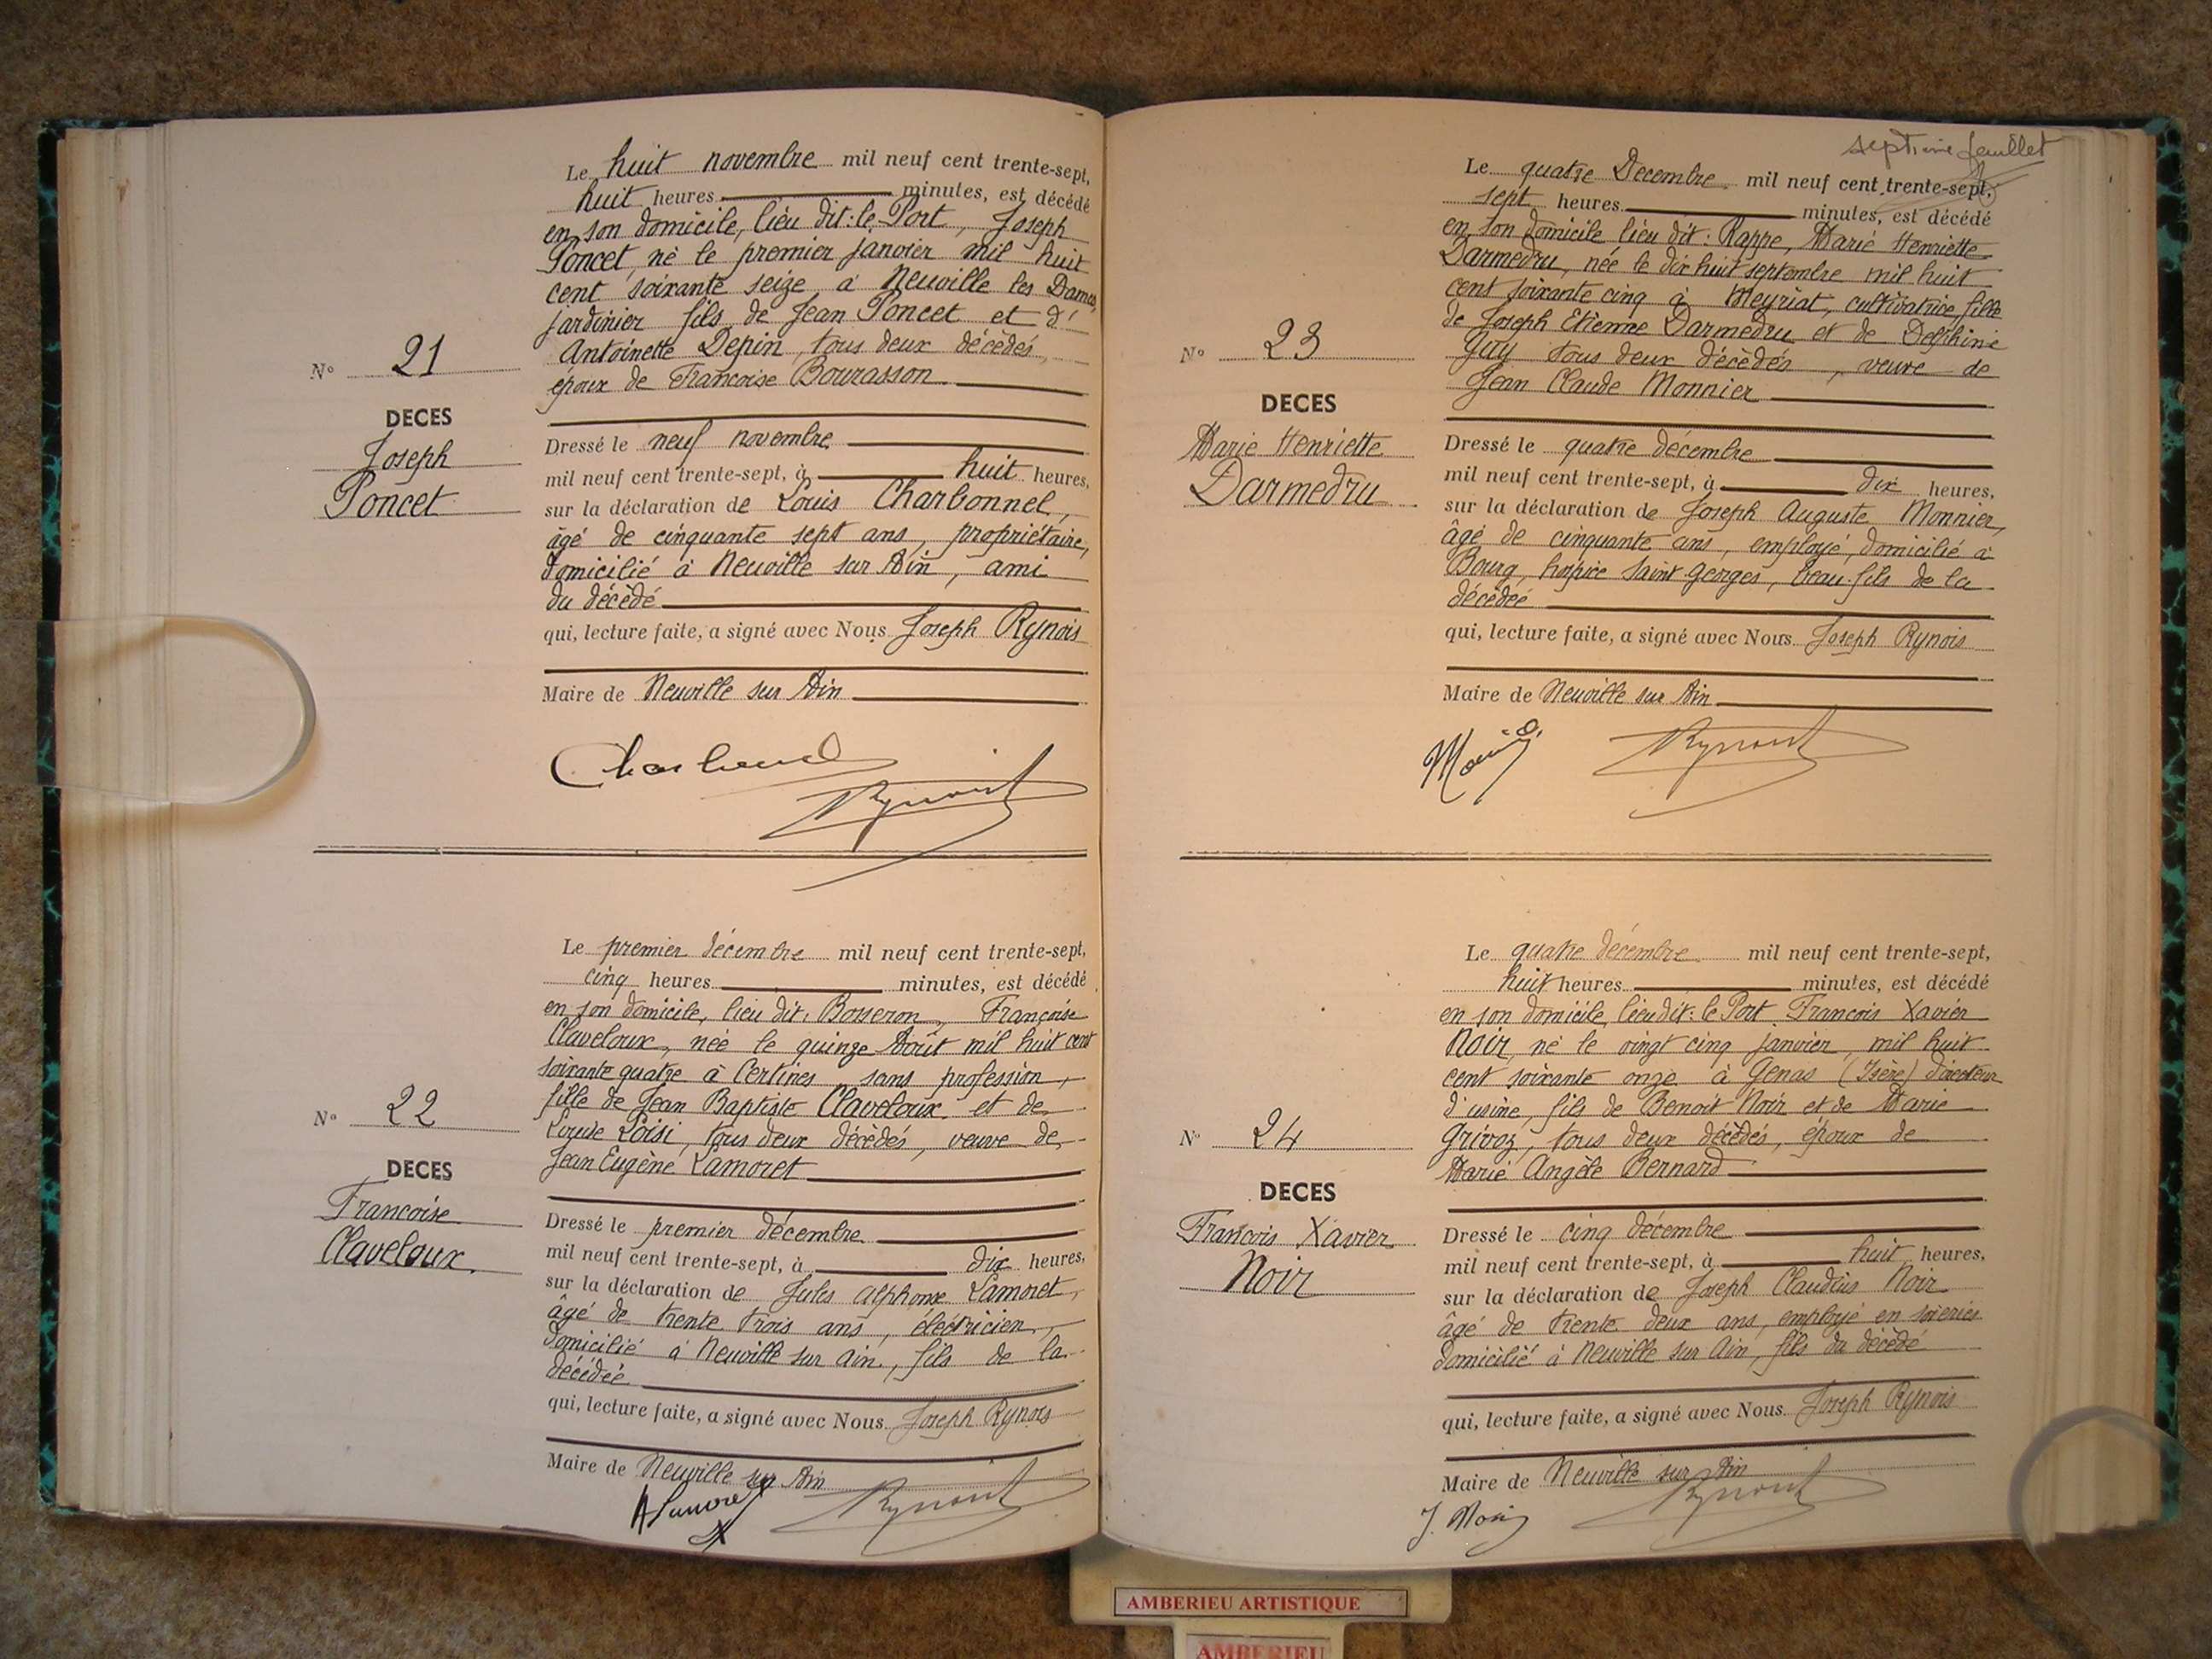 Le huit novembre mil neuf cent trente-sept,
huit heures minutes, est décédé
en son domicile, lieu dit: le Port, Joseph
Poncet, né le premier janvier mil huit
cent soixante seize à Neuville les Dames,
jardinier fils de Jean Poncet et d'
Antoinette Depin, tous deux décédés,
époux de Françoise Bourasson
N° 21
DECES
Joseph
Poncet
Dressé le neuf novembre
mil neuf cent trente-sept, à huit heures,
sur la déclaration de Louis Charbonnel,
âgé de cinquante sept ans, propriétaire,
domicilié à Neuville sur Ain, ami
du décédé
qui, lecture faite, a signé avec Nous Joseph Rynois
Maire de Neuville sur Ain
Le premier décembre mil neuf cent trente-sept,
cinq heures minutes, est décédé
en son domicile, lieu dit: Bosseron, Françoise
Claveloux, née le quinze Août mil huit cent
soixante quatre à Certines sans profession,
fille de Jean Baptiste Claveloux et de
Louise Loisi, tous deux décédés, veuve de
Jean Eugène Lamoret
N° 22
DECES
Françoise
Claveloux
Dressé le premier décembre
mil neuf cent trente-sept, à dix heures,
sur la déclaration de Jules Alphonse Lamoret,
âgé de trente trois ans, électricien,
domicilié à Neuville sur Ain, fils de la
décédée
qui, lecture faite, a signé avec Nous Joseph Rynois
Maire de Neuville sur Ain
septième feuillet
Le quatre Decembre mil neuf cent trente-sept,
sept heures minutes, est décédé
en son domicile lieu dit: Rappe, Marie Henriette
Darmedru, née le dix huit septembre mil huit
cent soixante cinq à Meyriat, cultivatrice, fille
de Joseph Etienne Darmedru et de Delphine
Guy tous deux décédés, veuve de
Jean Claude Monnier
N° 23
DECES
Marie Henriette
Darmedru
Dressé le quatre décembre
mil neuf cent trente-sept, à dix heures,
sur la déclaration de Joseph Auguste Monnier,
âgé de cinquante ans, employé, domicilié à
Bourg, hospice Saint Georges, beau-fils de la
décédée
qui, lecture faite, a signé avec Nous Joseph Rynois
Maire de Neuville sur Ain
Le quatre décembre mil neuf cent trente-sept,
huit heures minutes, est décédé
en son domicile, lieu dit: le Port François Xavier
Noir, né le vingt cinq janvier mil huit
cent soixante onze à Genas (Isère) directeur
d'usine, fils de Benoît Noir et de Marie
Grivoz, tous deux décédés, époux de
Marie Angèle Bernard
N° 24
DECES
François Xavier
Noir
Dressé le cinq décembre
mil neuf cent trente-sept, à huit heures,
sur la déclaration de Joseph Claudius Noir
âgé de trente deux ans, employé en soieries
domicilié à Neuville sur Ain, fils du décédé
qui, lecture faite, a signé avec Nous Joseph Rynois
Maire de Neuville sur Ain
J. Noir
AMBERIEU ARTISTIQUE
AMBERIEU